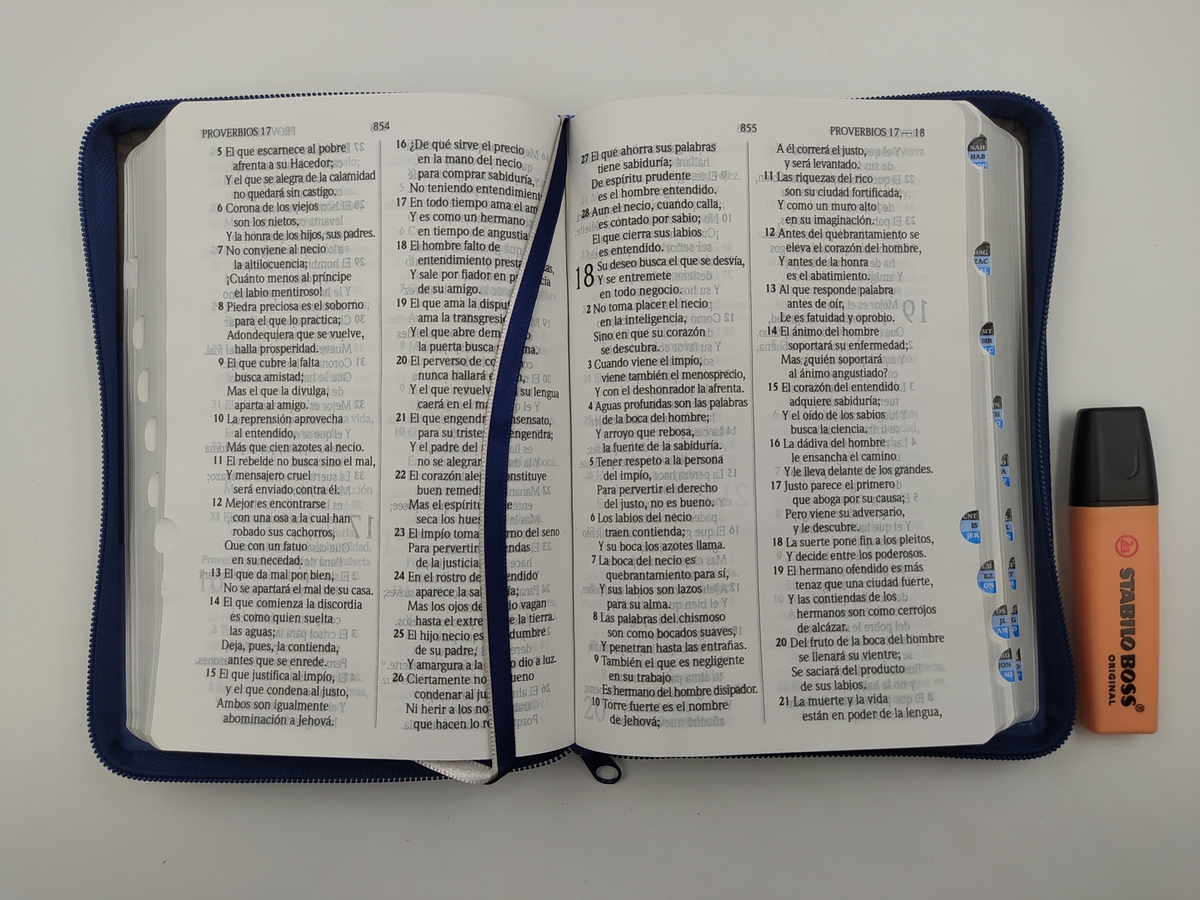 PROVERBIOS 17
854
5 El que escarnece al pobre
afrenta a su Hacedor;
Y el que se alegra de la calamidad
no quedará sin castigo.
6 Corona de los viejos
son los nietos,
Y la honra de los hijos, sus padres.
7 No conviene al necio
la altilocuencia;
¡Cuánto menos al príncipe
el labio mentiroso!
8 Piedra preciosa es el soborno
para el que lo practica;
Adondequiera que se vuelve,
halla prosperidad.
9 El que cubre la falta
busca amistad;
Mas el que la divulga,
aparta al amigo.
10 La reprensión aprovecha
al entendido,
Más que cien azotes al necio.
11 El rebelde no busca sino el mal,
Y mensajero cruel
será enviado contra él.
12 Mejor es encontrarse
con una osa a la cual han
robado sus cachorros,
Que con un fatuo
en su necedad.
13 El que da mal por bien,
No se apartará el mal de su casa.
14 El que comienza la discordia
es como quien suelta
las aguas;
Deja, pues, la contienda,
antes que se enrede.
15 El que justifica al impío,
y el que condena al justo,
Ambos son igualmente
abominación a Jehová.
16 ¿De qué sirve el precio
en la mano del necio
para comprar sabiduría,
No teniendo entendimient
17 En todo tiempo ama el am
Y es como un hermano
en tiempo de angustia
18 El hombre falto de
entendimiento prest as,
Y sale por fiador en p cia
de su amigo.
19 El que ama la disput
ama la transgresi
Y el que abre dem
la puerta busca na.
20 El perverso de co
nunca hallará n,
Y el que revuelv su lengua
caerá en el m
21 El que engendr nsensato,
para su triste engendra;
Y el padre del
no se alegrar
22 El corazón ale onstituye
buen remed
Mas el espírit
seca los hues
23 El impío toma rno del seno
Para pervertir endas
de la justicia
24 En el rostro de endido
aparece la sa ía;
Mas los ojos de io vagan
hasta el extre e la tierra.
25 El hijo necio es dumbre
de su padre,
Y amargura a la o dio a luz.
26 Ciertamente no ueno
condenar al ju
Ni herir a los no
que hacen lo re
855
PROVERBIOS 17—18
27 El que ahorra sus palabras
tiene sabiduría;
De espíritu prudente
es el hombre entendido.
28 Aun el necio, cuando calla,
es contado por sabio;
El que cierra sus labios
es entendido.
18 Su deseo busca el que se desvía,
Y se entremete
en todo negocio.
2 No toma placer el necio
en la inteligencia,
Sino en que su corazón
se descubra.
3 Cuando viene el impío,
viene también el menosprecio,
Y con el deshonrador la afrenta.
4 Aguas profundas son las palabras
de la boca del hombre;
Y arroyo que rebosa,
la fuente de la sabiduría.
5 Tener respeto a la persona
del impío,
Para pervertir el derecho
del justo, no es bueno.
6 Los labios del necio
traen contienda;
Y su boca los azotes llama.
7 La boca del necio es
quebrantamiento para sí,
Y sus labios son lazos
para su alma.
8 Las palabras del chismoso
son como bocados suaves,
Y penetran hasta las entrañas.
9 También el que es negligente
en su trabajo
Es hermano del hombre disipador.
10 Torre fuerte es el nombre
de Jehová;
A él correrá el justo,
y será levantado.
11 Las riquezas del rico
son su ciudad fortificada,
Y como un muro alto
en su imaginación.
12 Antes del quebrantamiento se
eleva el corazón del hombre,
Y antes de la honra
es el abatimiento.
13 Al que responde palabra
antes de oír,
Le es fatuidad y oprobio.
14 El ánimo del hombre
soportará su enfermedad;
Mas ¿quién soportará
al ánimo angustiado?
15 El corazón del entendido
adquiere sabiduría;
Y el oído de los sabios
busca la ciencia.
16 La dádiva del hombre
le ensancha el camino
Y le lleva delante de los grandes.
17 Justo parece el primero
que aboga por su causa;
Pero viene su adversario,
y le descubre.
18 La suerte pone fin a los pleitos,
Y decide entre los poderosos.
19 El hermano ofendido es más
tenaz que una ciudad fuerte,
Y las contiendas de los
hermanos son como cerrojos
de alcázar.
20 Del fruto de la boca del hombre
se llenará su vientre;
Se saciará del producto
de sus labios.
21 La muerte y la vida
están en poder de la lengua,
NAH
HAB
IS
JER
EZ
DN
STABILO BOSS®
ORIGINAL